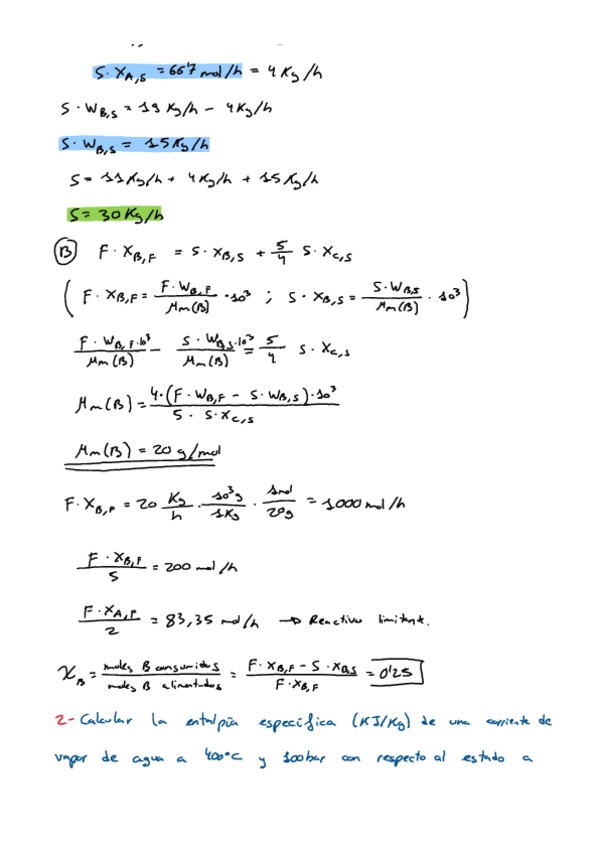 S·X_A,S = 66'7 mol/h = 4 Kg/h
S·W_B,S = 19 Kg/h - 4Kg/h
S·W_B,S = 15Kg/h
S = 11Kg/h + 4Kg/h + 15Kg/h
S = 30Kg/h
(B) F·X_B,F = S·X_B,S + 5/4 S·X_C,S
( F·X_B,F = F·W_B,F / Mm(B) · 10³ ; S·X_B,S = S·W_B,S / Mm(B) · 10³ )
F·W_B,F·10³ / Mm(B) - S·W_B,S·10³ / Mm(B) = 5/4 S·X_C,S
Mm(B) = 4·(F·W_B,F - S·W_B,S)·10³ / 5·S·X_C,S
Mm(B) = 20 g/mol
F·X_B,F = 20 Kg/h · 10³g/1Kg · 1mol/20g = 1000 mol/h
F·X_B,F / 5 = 200 mol/h
F·X_A,F / 2 = 83,35 mol/h → Reactivo limitant.
X_B = moles B consumidos / moles B alimentados = F·X_B,F - S·X_B,S / F·X_B,F = 0'25
2- Calcular la entalpía específica (KJ/Kg) de una corriente de
vapor de agua a 400°C y 100bar con respecto al estado a